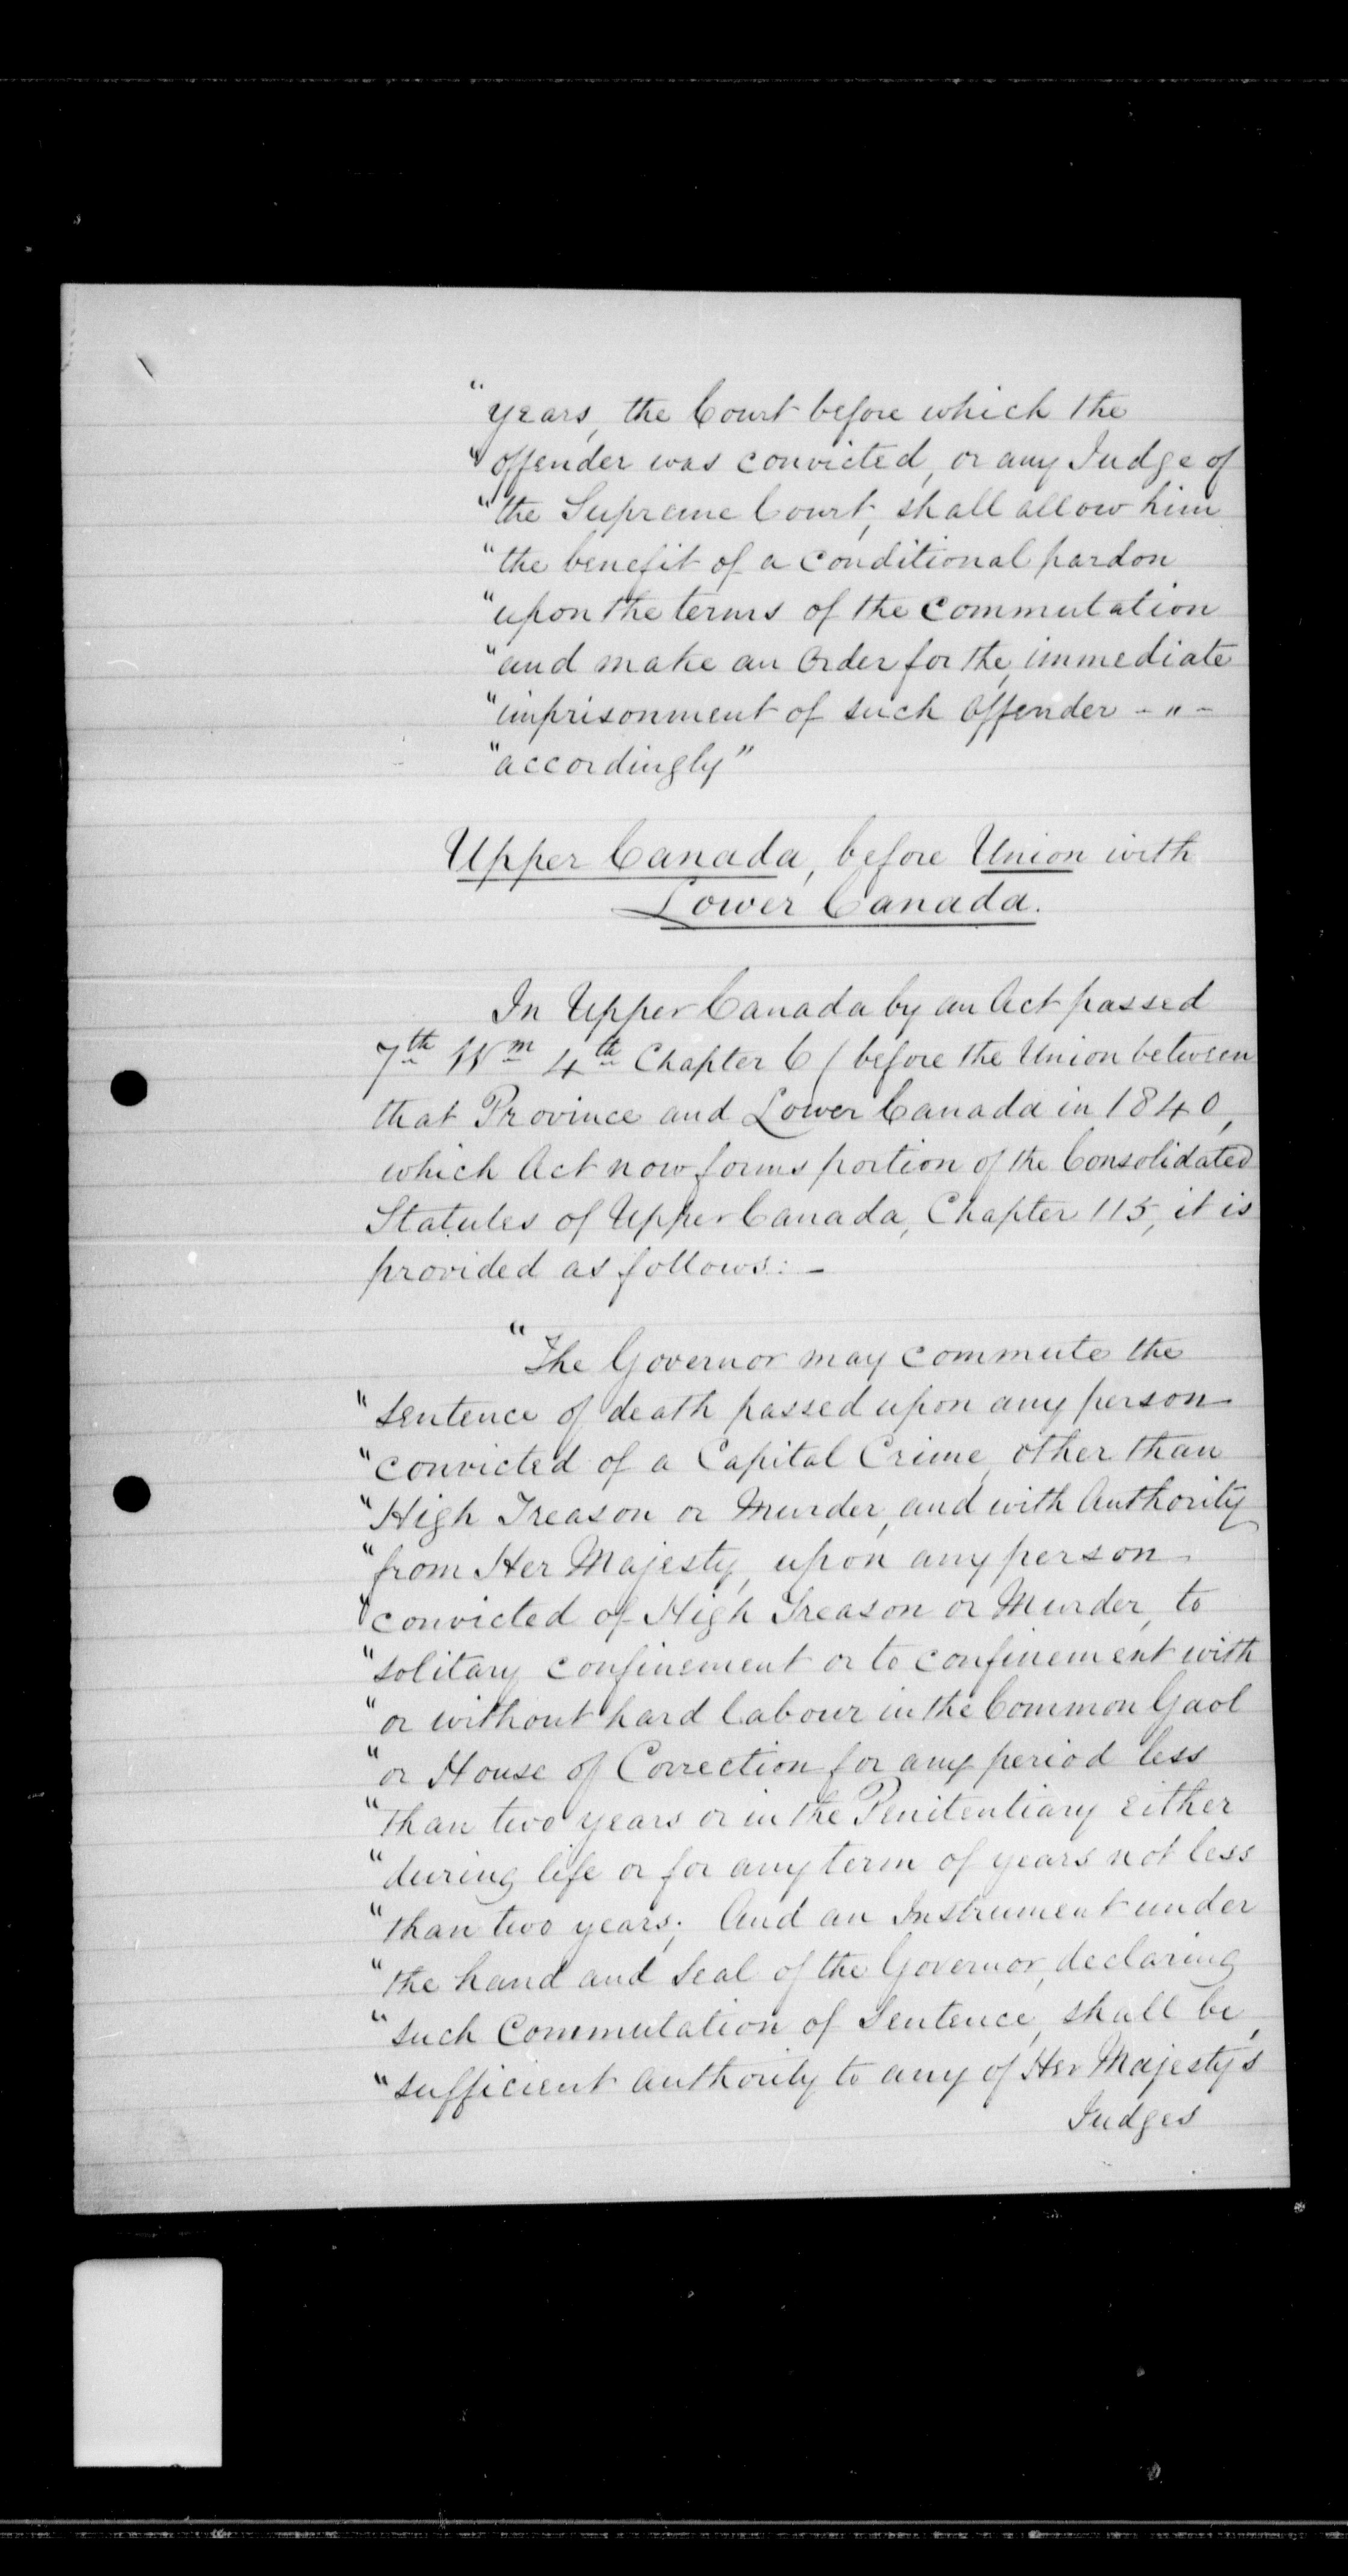 "years, the Court before which the
"offender was convicted, or any Judge of
"the Supreme Court, shall allow him
"the benefit of a conditional pardon
"upon the terms of the commutation
"and make an order for the, immediate
"imprisonment of such offender - " -
"accordingly"
Upper Canada, before Union with
Lower Canada.
In Upper Canada by an Act passed
7th Wm 4th Chapter 6 (before the Union between
that Province and Lower Canada in 1840,
which Act now forms portion of the Consolidated
Statutes of Upper Canada, Chapter 115, it is
provided as follows: -
"The Governor may commute the
"Sentence of death passed upon any person
"convicted of a Capital Crime, other than
"High Treason or Murder, and with Authority
"from Her Majesty, upon any person
"convicted of High Treason or Murder, to
"solitary confinement or to confinement with
"or without hard labour in the Common Gaol
"or House of Correction for any period less
"than two years or in the Penitentiary either
"during life or for any term of years not less
"than two years; And an Instrument under
"the hand and Seal of the Governor, declaring
"such Commutation of Sentence, shall be,
"sufficient authority to any of Her Majesty's
Judges